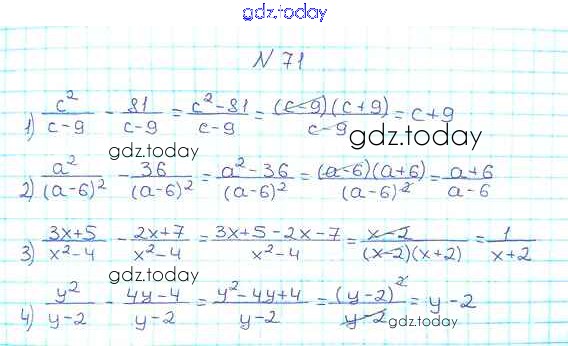 gdz.today
N 71
1) c²/(c-9) - 81/(c-9) = (c²-81)/(c-9) = (c-9)(c+9)/(c-9) = c+9
gdz.today
gdz.today
2) a²/(a-6)² - 36/(a-6)² = (a²-36)/(a-6)² = (a-6)(a+6)/(a-6)² = (a+6)/(a-6)
3) (3x+5)/(x²-4) - (2x+7)/(x²-4) = (3x+5-2x-7)/(x²-4) = (x-2)/((x-2)(x+2)) = 1/(x+2)
gdz.today
4) y²/(y-2) - (4y-4)/(y-2) = (y²-4y+4)/(y-2) = (y-2)²/(y-2) = y-2
gdz.today